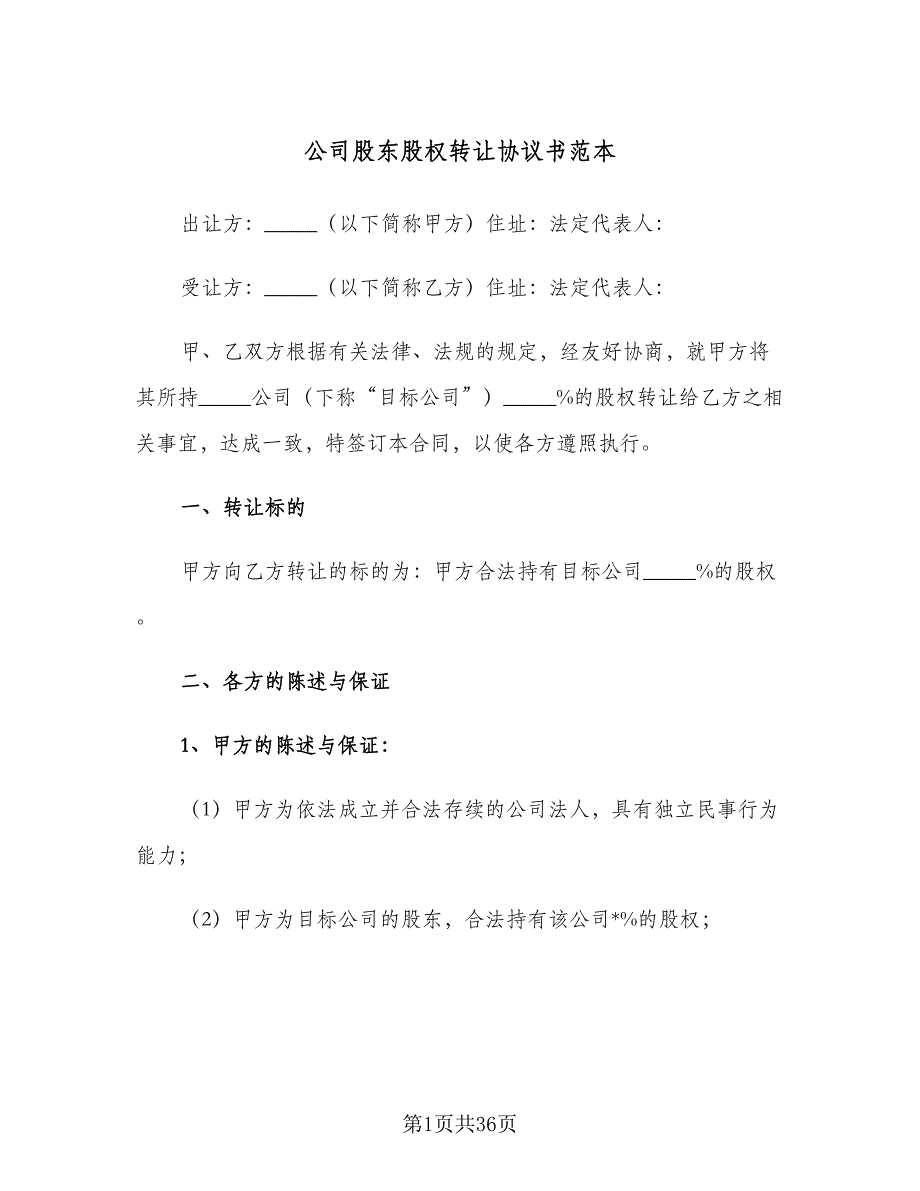 公司股东股权转让协议书范本
出让方：_____（以下简称甲方）住址：法定代表人：
受让方：_____（以下简称乙方）住址：法定代表人：
甲、乙双方根据有关法律、法规的规定，经友好协商，就甲方将
其所持_____公司（下称“目标公司”）_____%的股权转让给乙方之相
关事宜，达成一致，特签订本合同，以使各方遵照执行。
一、转让标的
甲方向乙方转让的标的为：甲方合法持有目标公司_____%的股权
。
二、各方的陈述与保证
1、甲方的陈述与保证：
（1）甲方为依法成立并合法存续的公司法人，具有独立民事行为
能力；
（2）甲方为目标公司的股东，合法持有该公司*%的股权；
第1页共36页